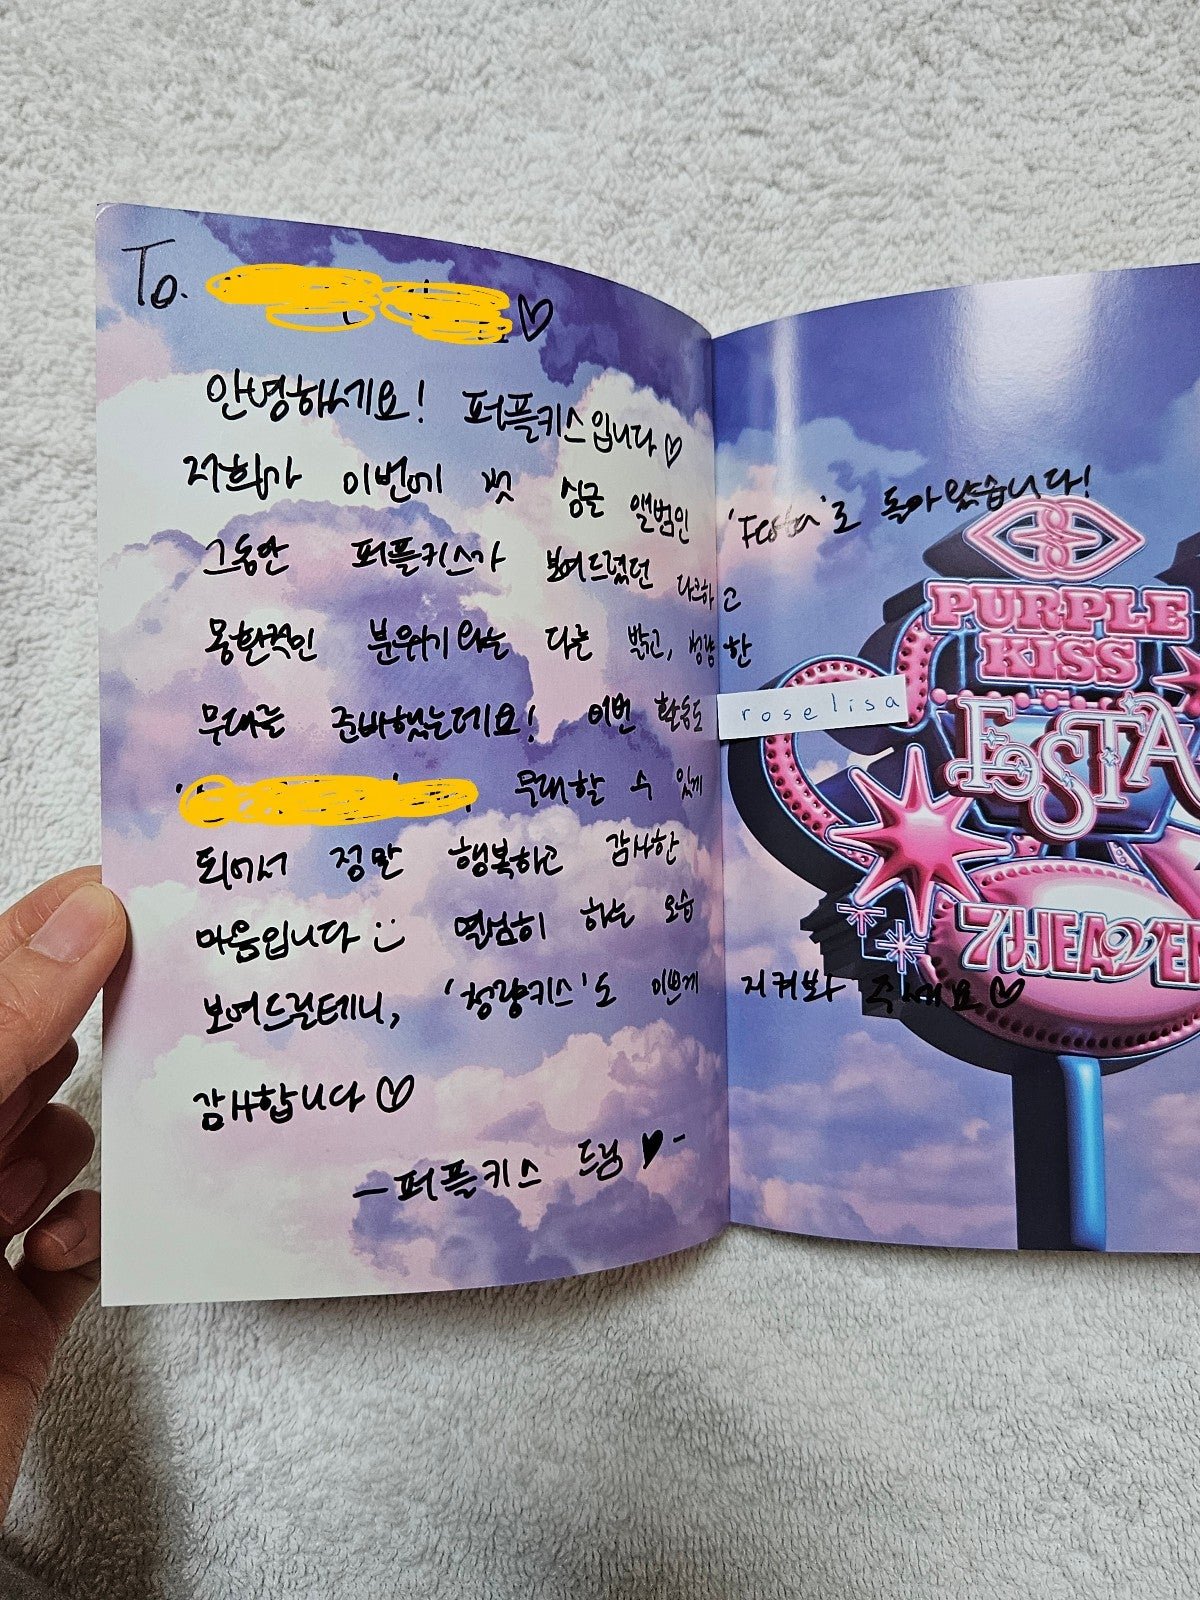 To. ♡
안녕하세요! 퍼플키스입니다♡
저희가 이번에 첫 싱글 앨범인 'Festa'로 돌아왔습니다!
그동안 퍼플키스가 보여드렸던 다크하고
몽환적인 분위기와는 다른 밝고, 청량한
무대를 준비했는데요! 이번 활동도
무대할 수 있게
되어서 정말 행복하고 감사한
마음입니다 :) 열심히 하는 모습
보여드릴테니, '청량키스'도 이쁘게 지켜봐 주세요♡
감사합니다♡
-퍼플키스 드림♥-
roselisa
PURPLE
KISS
FESTA
7HEAVEN